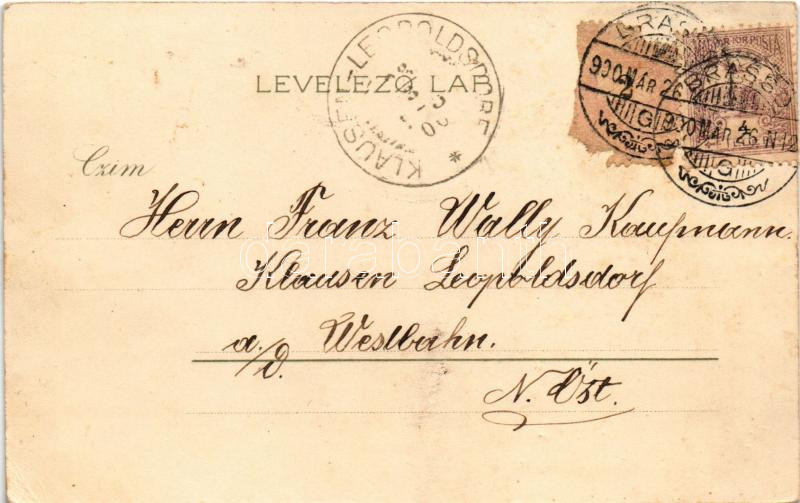 LEVELEZŐ LAP
KLAUSEN-LEOPOLDSDORF *
BRASSÓ
900 MÁR 26
G
MAGYAR KIR. POSTA
BRASSÓ
900 MÁR 26 N12
G
Czim
Herrn Franz Wally Kaufmann.
Klausen Leopoldsdorf
a/d. Westbahn.
N. Öst.
darabanth